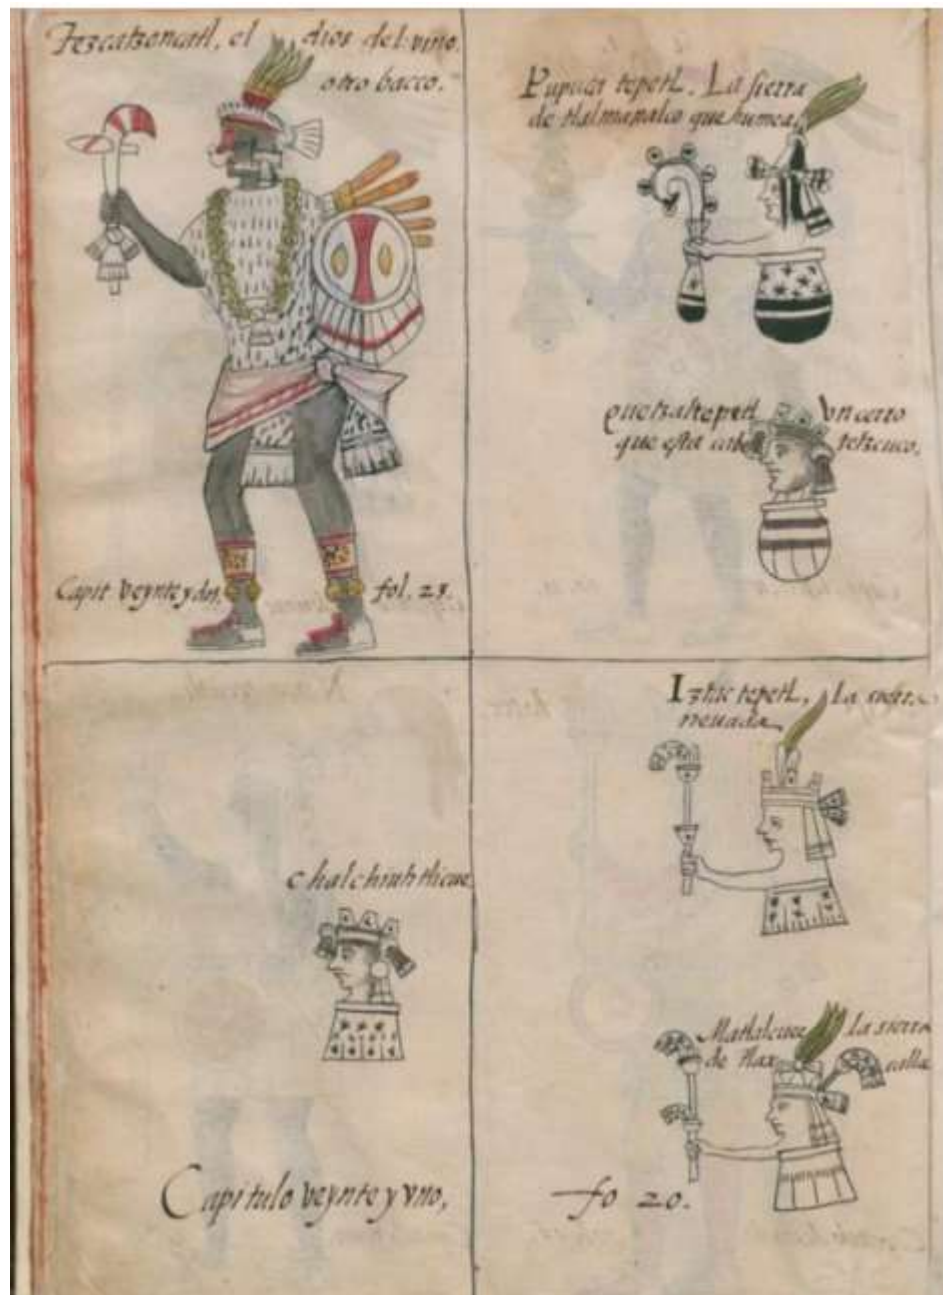 Tezcatzoncatl, el dios del vino,
otro bacco.
Capit veynte y dos, fol. 23.
Pupuca tepetl. La sierra
de tlalmanalco que humea,
quetzaltepetl Vn cerro
que esta cabe tetzcuco.
chalchiuhtlicue
Capitulo veynte y vno,
Iztac tepetl, La sierra
neuada
Matlalcueye La sierra
de tlaxcalla
fo 20.